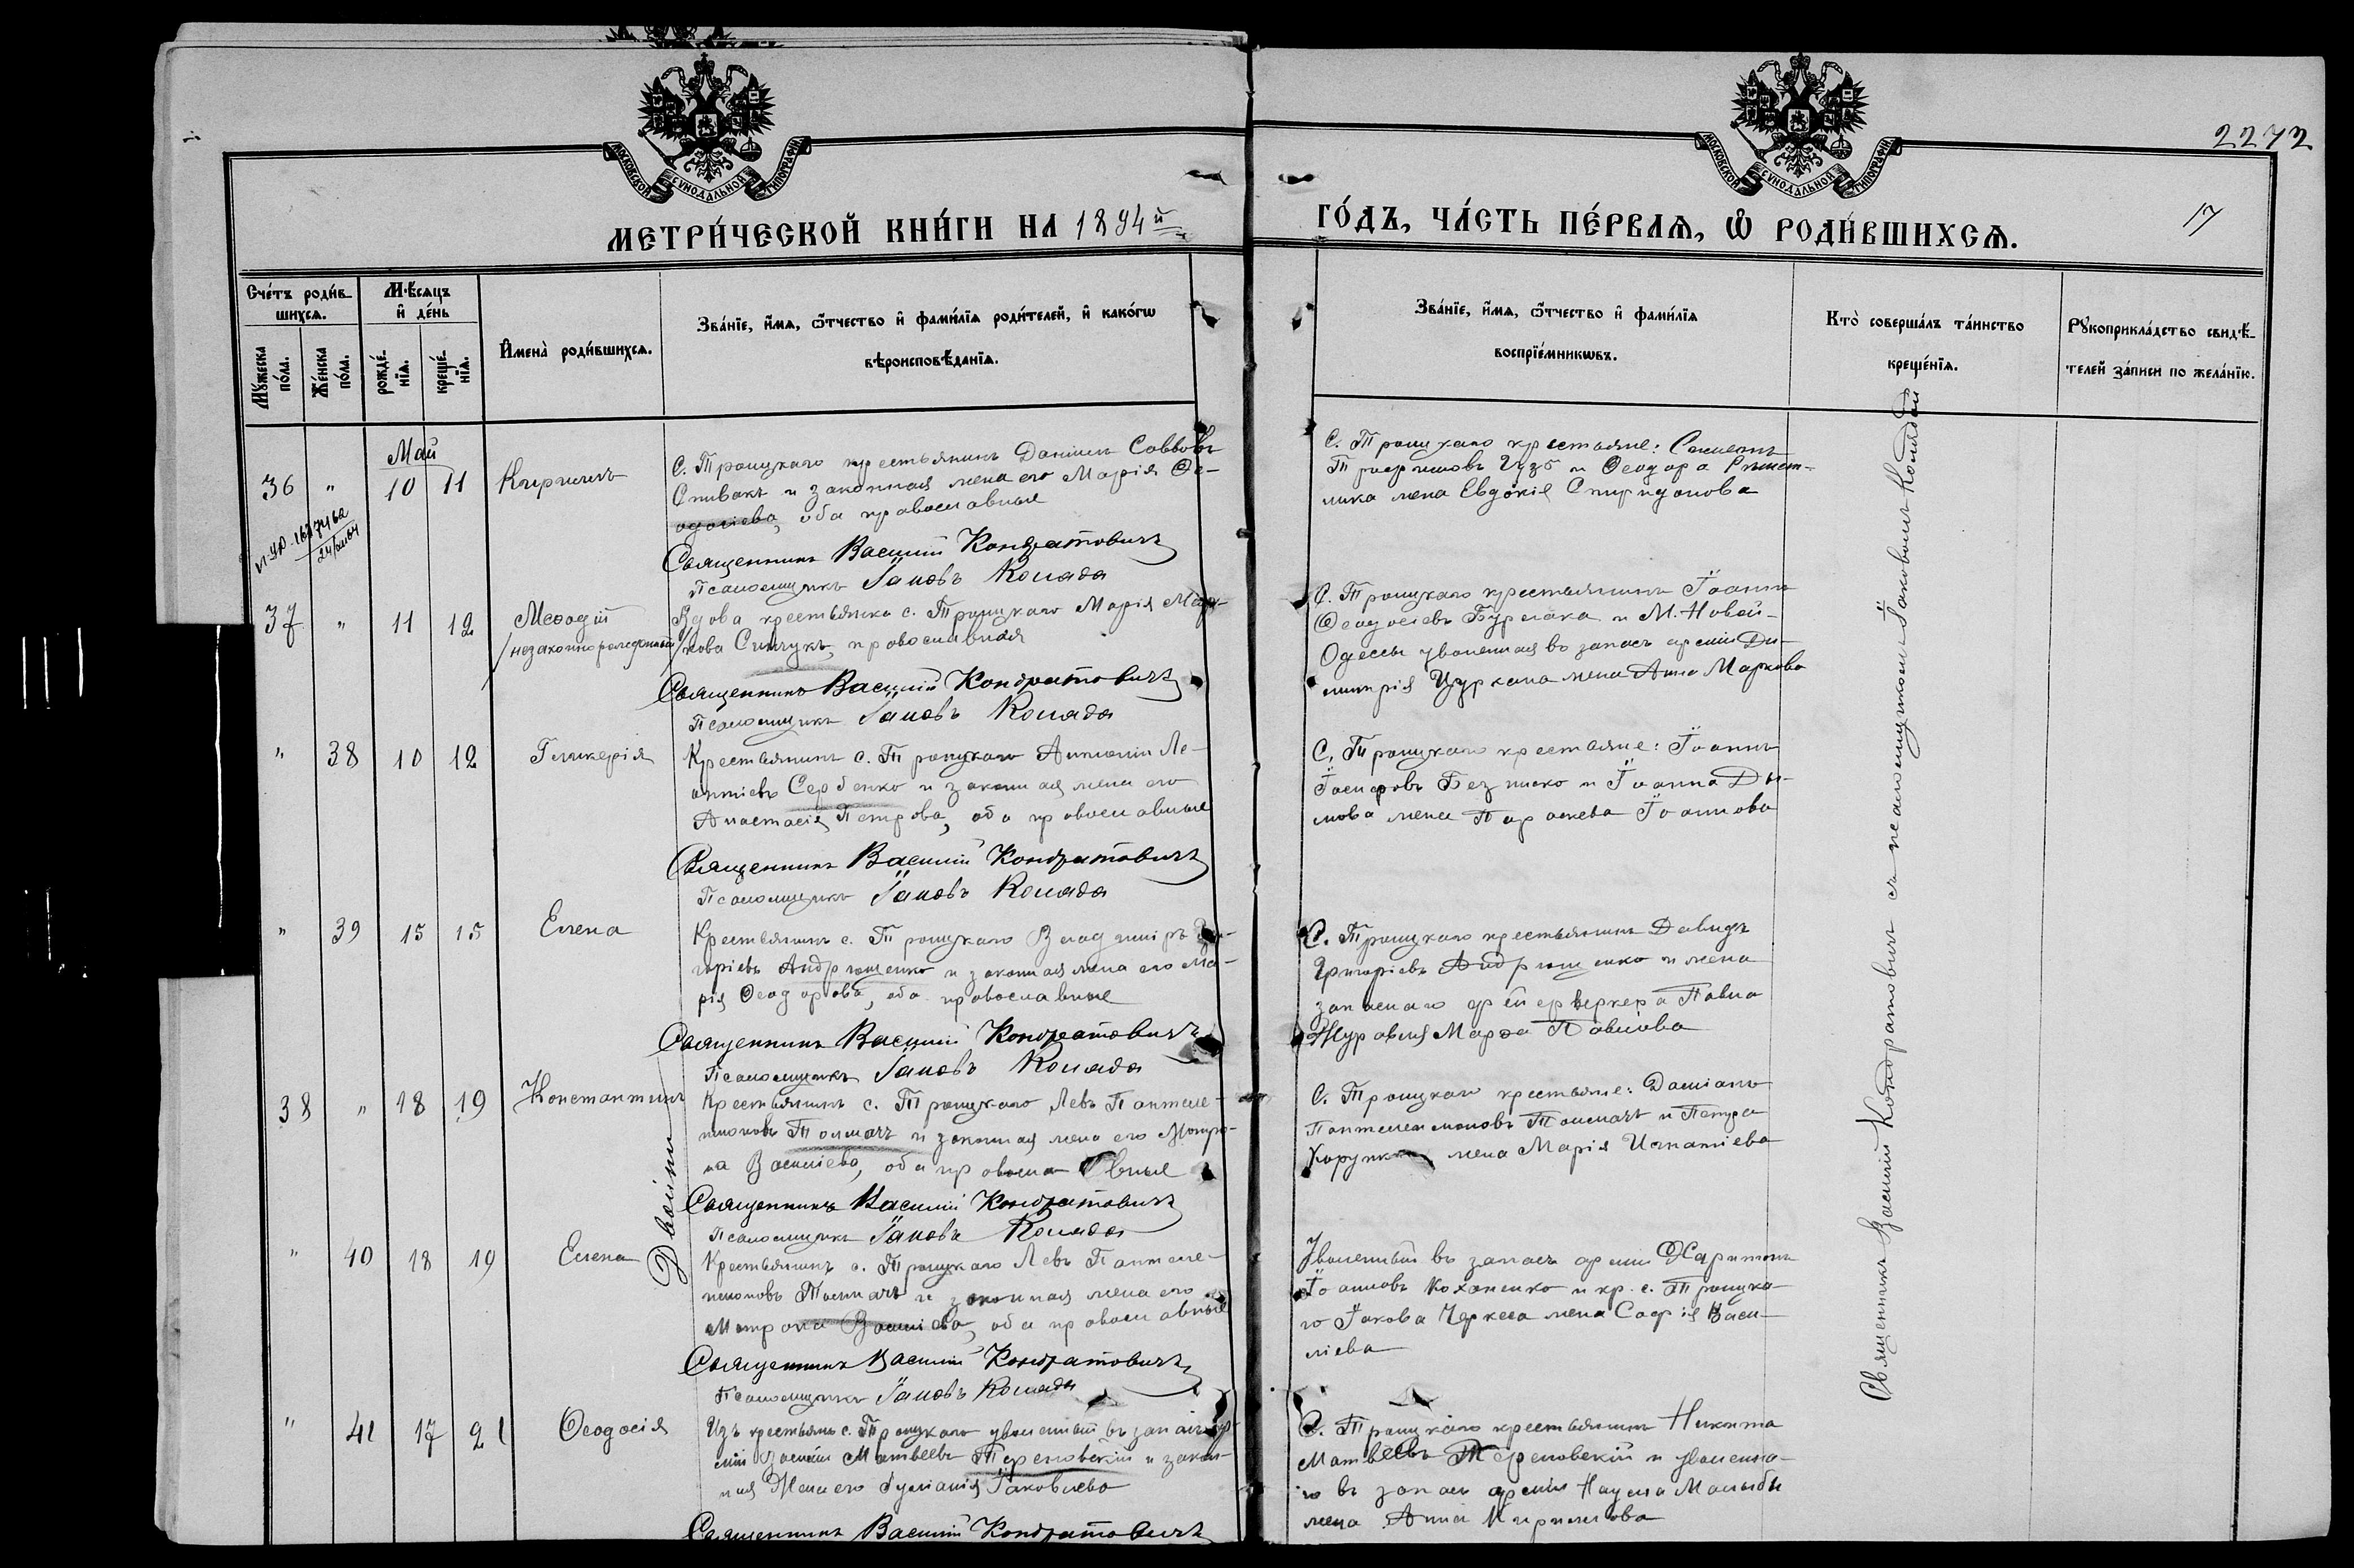 2272
МОСКОВСКОЙ СѴНОДАЛЬНОЙ ТИПОГРАФІИ
МОСКОВСКОЙ СѴНОДАЛЬНОЙ ТИПОГРАФІИ
МЕТРИ́ЧЕСКОЙ КНИ́ГИ НА 1894й
ГО́ДЪ, ЧА́СТЬ ПЕ́РВАѦ, Ѡ РОДИ́ВШИХСѦ.
17
Сче́тъ роди́в-
шихсѧ.
Мѣ́сѧцъ
и҆ де́нь
Мꙋ́жеска
по́ла.
Же́нска
по́ла.
рожде́-
нїѧ.
креще́-
нїѧ.
И҆мена̀ роди́вшихсѧ.
Зва́нїе, и҆́мѧ, ѻ҆́тчество и҆ фами́лїѧ роди́телей, и҆ како́гѡ
вѣроисповѣ́данїѧ.
Зва́нїе, и҆́мѧ, ѻ҆́тчество и҆ фами́лїѧ
воспрїе́мникѡвъ.
Кто̀ соверша́лъ та́инство
креще́нїѧ.
Рꙋкоприкла́дство свидѣ́-
телей за́писи по жела́нїю.
Май
36 " 10 11 Кириллъ
С. Троицкаго крестьянинъ Даніилъ Саввовъ
Спивакъ и законная жена его Марія Ѳе-
одосіева, оба православные
Священникъ Василій Кондратовичъ
Псаломщикъ Іаковъ Коляда
С. Троицкаго крестьяне: Симеонъ
Трофимовъ Гузь и Ѳеодора
жена Евдокія Спиридонова
37 " 11 12 Меѳодій
/незаконнорожденный/
Вдова крестьянка с. Троицкаго Марія
Синчукъ, православная
Священникъ Василій Кондратовичъ
Псаломщикъ Іаковъ Коляда
С. Троицкаго крестьянинъ Іоаннъ
Ѳеодосіевъ Бурлака и М. Новой-
Одессы уволенная въ запасъ арміи Ди-
митрія Цуркана жена Анна Маркова
" 38 10 12 Гликерія
Крестьянинъ с. Троицкаго Антоній Ле-
онтіевъ Сербенко и законная жена его
Анастасія Петрова, оба православные
Священникъ Василій Кондратовичъ
Псаломщикъ Іаковъ Коляда
С. Троицкаго крестьяне: Іоаннъ
Іосифовъ и Іоанна Ды-
мова жена Параскева Іоаннова
" 39 15 15 Елена
Крестьянинъ с. Троицкаго Владиміръ Гри-
горіевъ Андрющенко и законная жена его Ма-
рія Ѳеодорова, оба православные
Священникъ Василій Кондратовичъ
Псаломщикъ Іаковъ Коляда
С. Троицкаго крестьянинъ Давидъ
Григоріевъ Андрющенко и жена
запаснаго фейерверкера Павла
Журавля Марѳа Павлова
38 " 18 19 Константинъ
Двойни
Крестьянинъ с. Троицкаго Левъ Пантеле-
имоновъ Толмачъ и законная жена его Матро-
на Василіева, оба православные
Священникъ Василій Кондратовичъ
Псаломщикъ Іаковъ Коляда
С. Троицкаго крестьяне: Даміанъ
Пантелеимоновъ Толмачъ и Петра
жена Марія Игнатіева
" 40 18 19 Елена
Крестьянинъ с. Троицкаго Левъ Пантеле-
имоновъ Толмачъ и законная жена его
Матрона Василіева, оба православные
Священникъ Василій Кондратовичъ
Псаломщикъ Іаковъ Коляда
Уволенный въ запасъ арміи Харитонъ
Іоанновъ Коханенко и кр. с. Троицка-
го Іакова Черкеса жена Софія Васи-
ліева
" 41 17 21 Ѳеодосія
Изъ крестьянъ с. Троицкаго уволенный въ запасъ ар-
міи Василій Матвѣевъ Тереновскій и закон-
ная жена его Іуліанія Іаковлева
Священникъ Василій Кондратовичъ
С. Троицкаго крестьянинъ Никита
Матвѣевъ Тереновскій и уволенна-
го въ запасъ арміи Наума
жена Анна Кириллова
Священникъ Василій Кондратовичъ съ псаломщикомъ Іаковомъ Колядой